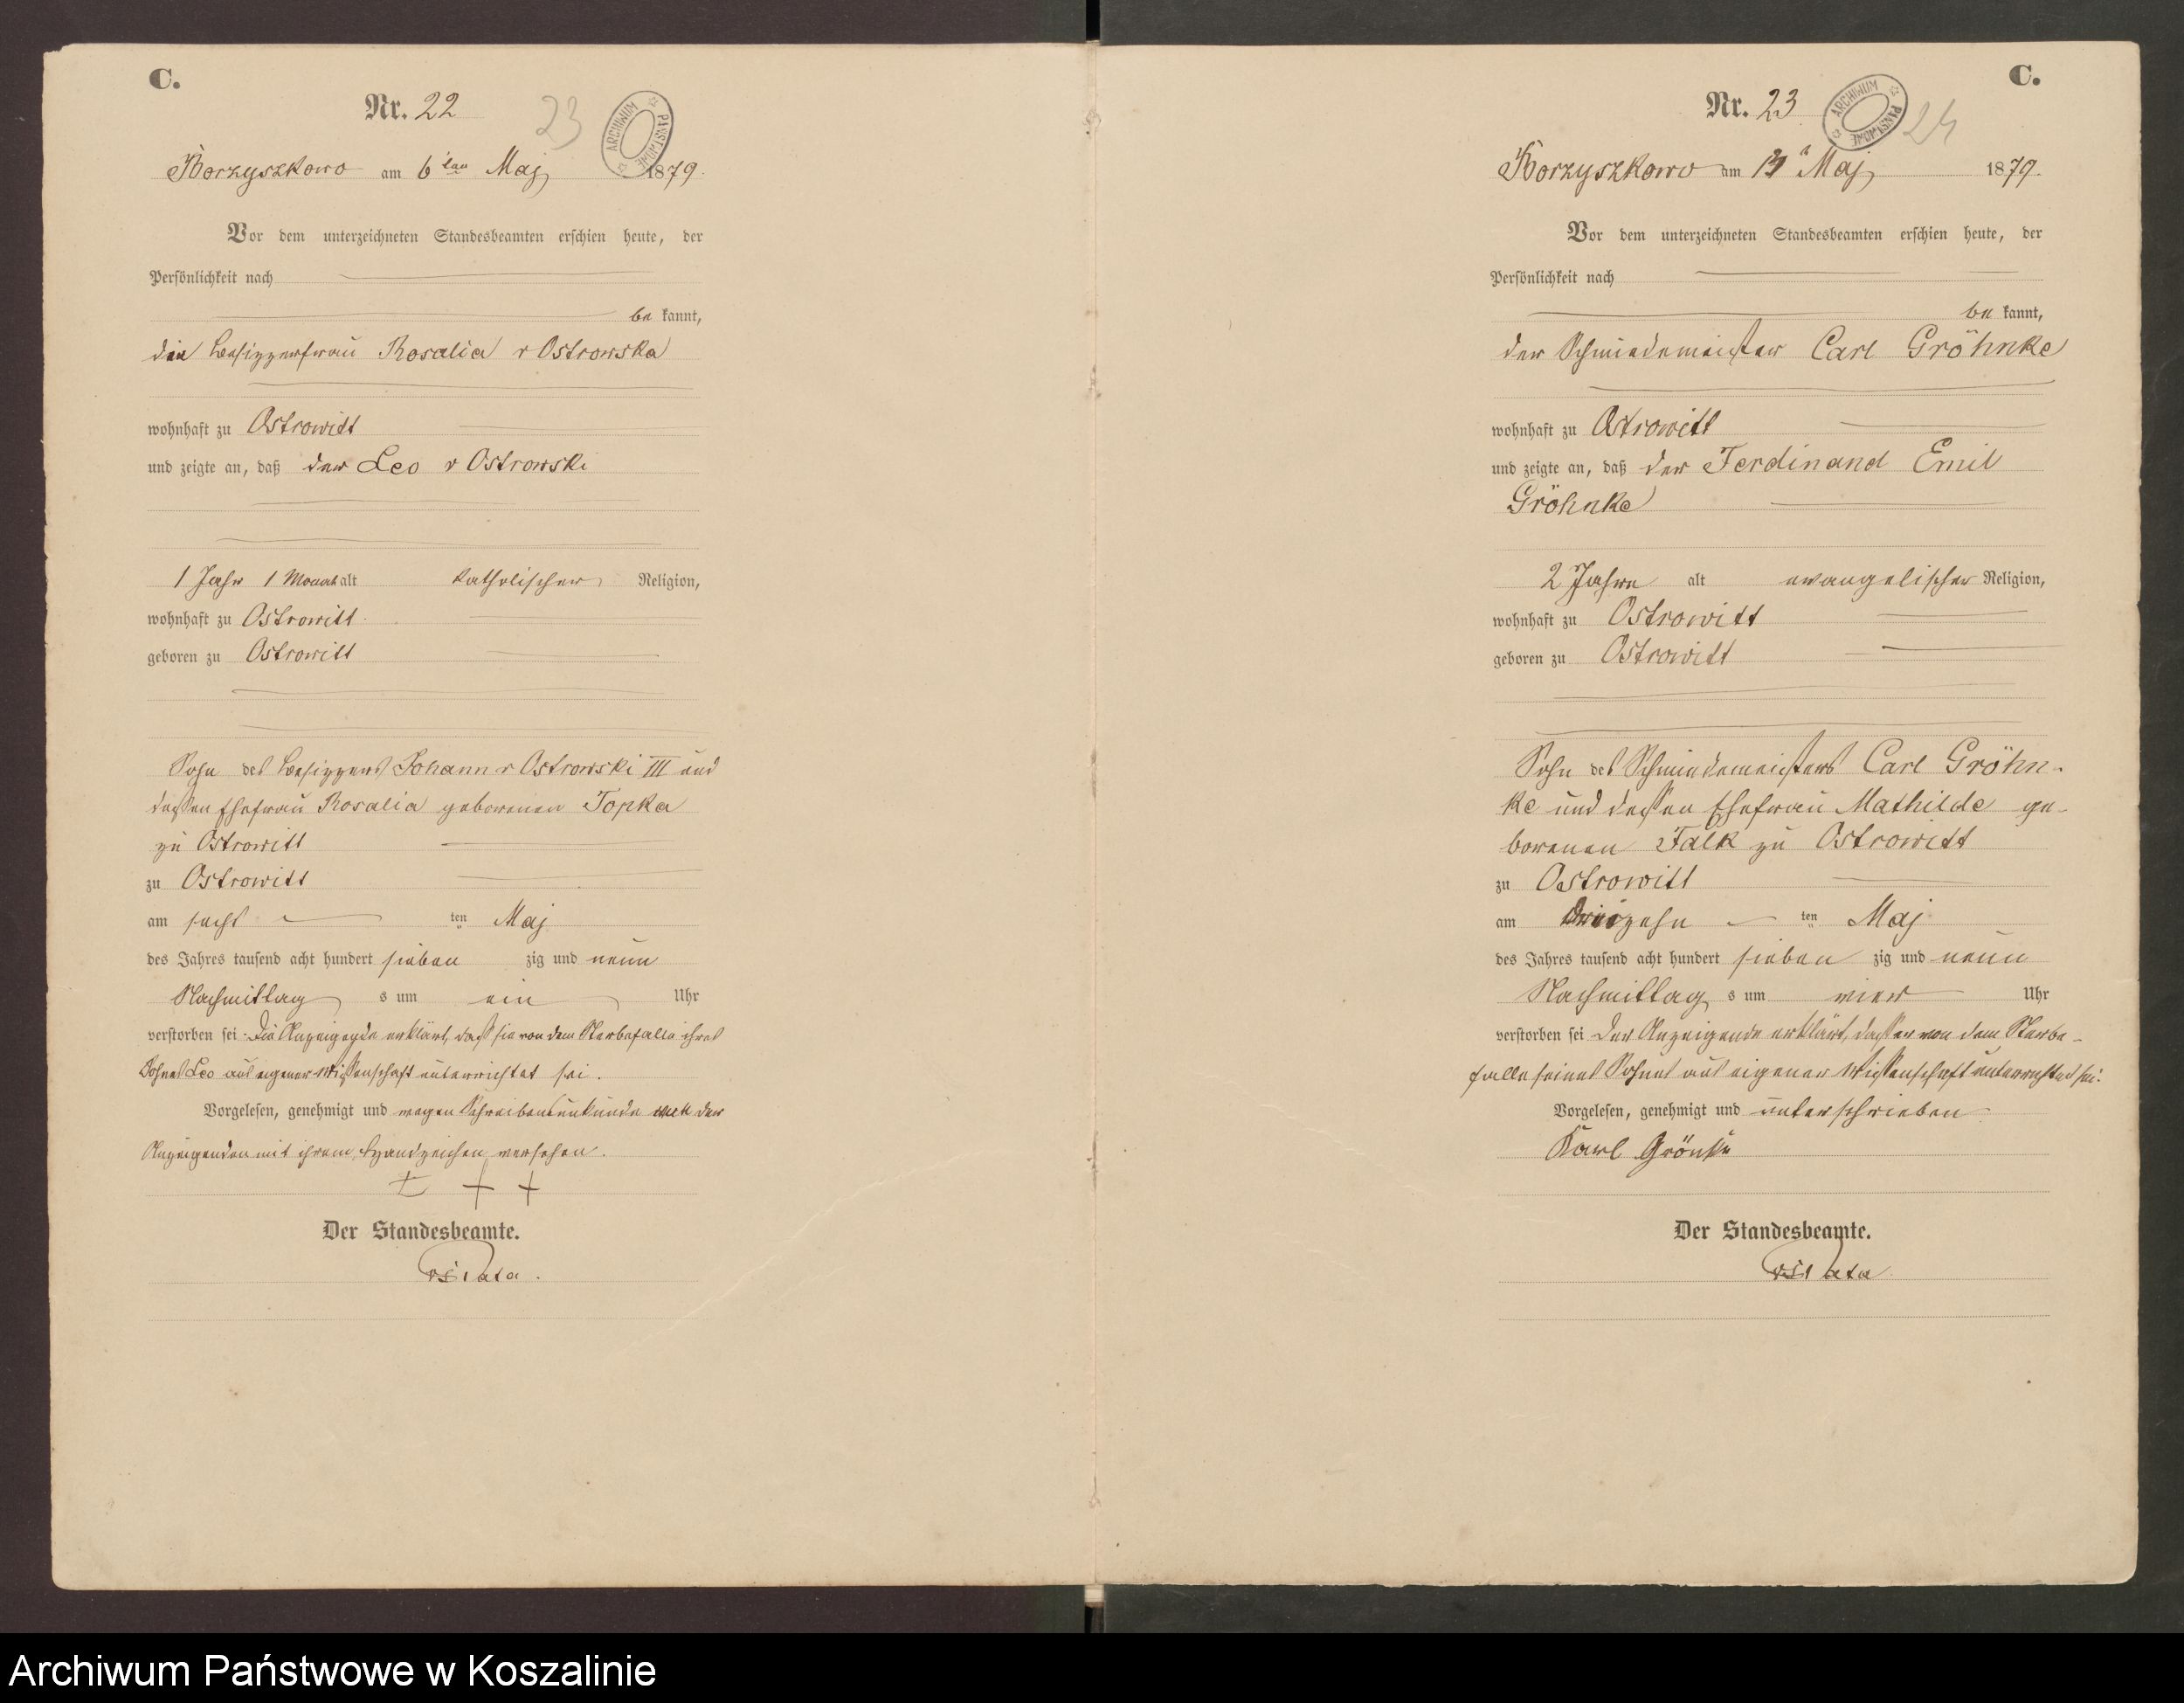 C.
Nr. 22
23
ARCHIWUM PAŃSTWOWE
Borzyszkowo am 6ten Maj 1879.
Vor dem unterzeichneten Standesbeamten erschien heute, der
Persönlichkeit nach
be kannt,
die Besitzerfrau Rosalia v Ostrowska
wohnhaft zu Ostrowitt
und zeigte an, daß der Leo v Ostrowski
1 Jahr 1 Monat alt katholischer Religion,
wohnhaft zu Ostrowitt
geboren zu Ostrowitt
Sohn des Besitzers Johann v Ostrowski III und
dessen Ehefrau Rosalia geborenen Topka
zu Ostrowitt
zu Ostrowitt
am sechs ten Maj
des Jahres tausend acht hundert sieben zig und neun
Nachmittag s um ein Uhr
verstorben sei. Die Anzeigende erklärt, daß sie von dem Sterbefalle ihres
Sohnes Leo aus eigener Wissenschaft unterrichtet sei.
Vorgelesen, genehmigt und wegen Schreibensunkunde von der
Anzeigenden mit ihrem Handzeichen versehen.
+ + +
Der Standesbeamte.
C.
Nr. 23
ARCHIWUM PAŃSTWOWE
24
Borzyszkowo am 13 Maj 1879.
Vor dem unterzeichneten Standesbeamten erschien heute, der
Persönlichkeit nach
be kannt,
der Schmiedemeister Carl Gröhnke
wohnhaft zu Ostrowitt
und zeigte an, daß der Ferdinand Emil
Gröhnke
2 Jahre alt evangelischer Religion,
wohnhaft zu Ostrowitt
geboren zu Ostrowitt
Sohn des Schmiedemeisters Carl Gröhn-
ke und dessen Ehefrau Mathilde ge-
borenen Falk zu Ostrowitt
zu Ostrowitt
am dreizehn ten Maj
des Jahres tausend acht hundert sieben zig und neun
Nachmittag s um vier Uhr
verstorben sei Der Anzeigende erklärt, dass er von dem Sterbe-
falle seines Sohnes aus eigener Wissenschaft unterrichtet sei.
Vorgelesen, genehmigt und unterschrieben
Karl Grönke
Der Standesbeamte.
Archiwum Państwowe w Koszalinie